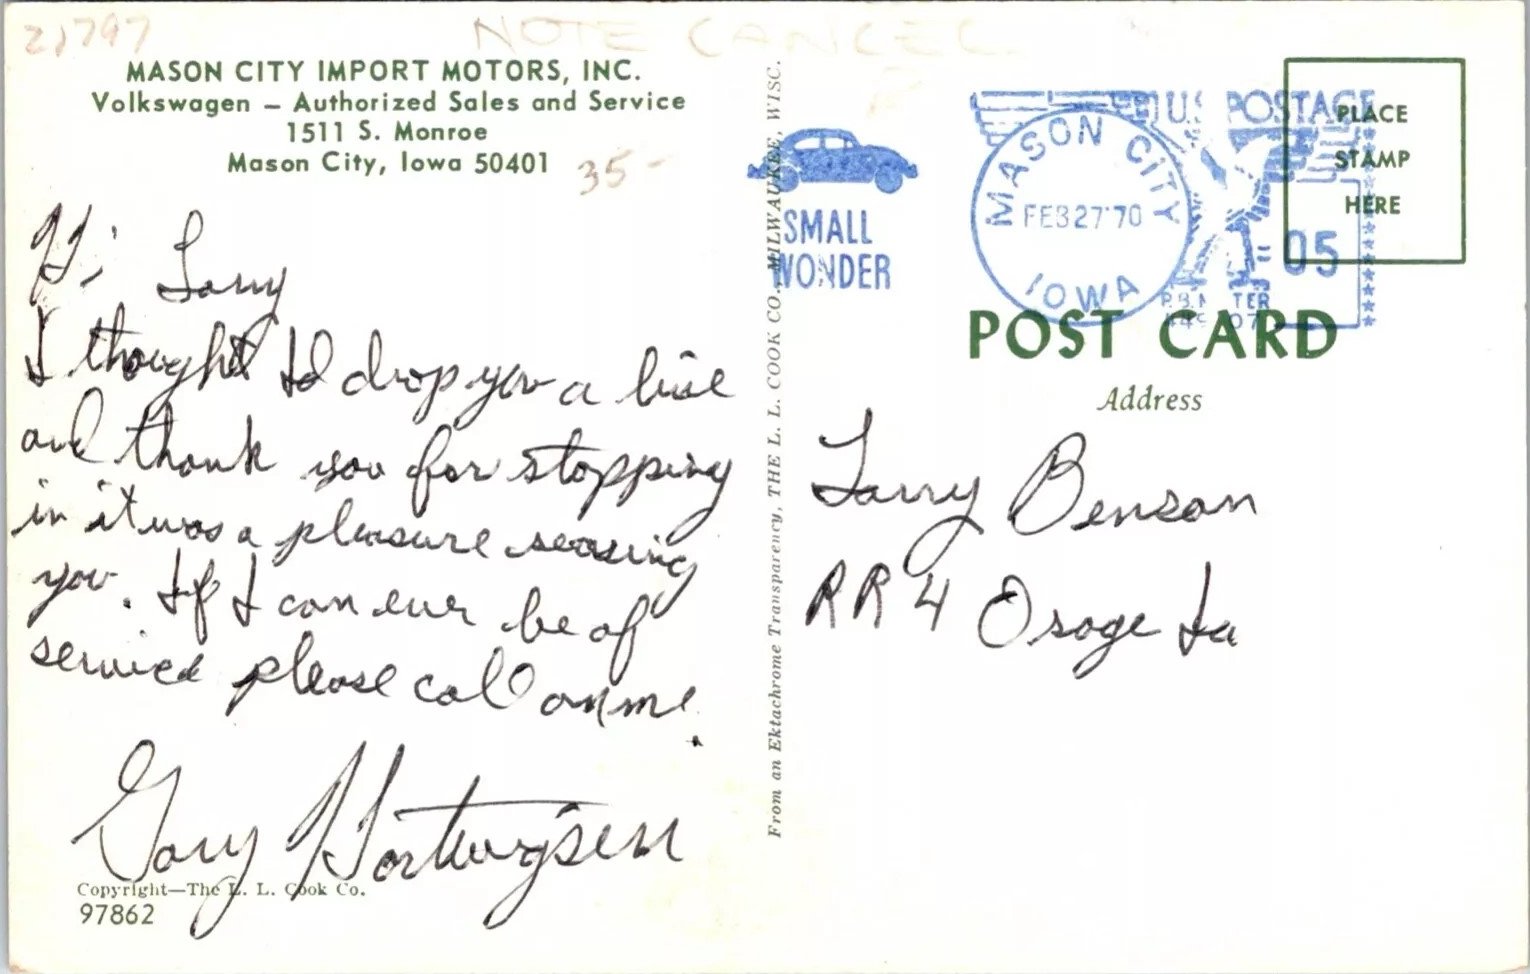 21797
NOTE CANCEL
MASON CITY IMPORT MOTORS, INC.
Volkswagen – Authorized Sales and Service
1511 S. Monroe
Mason City, Iowa 50401
35-
Hi Larry
I thought Id drop you a line
and thank you for stopping
in it was a pleasure seasing
you. If I can ever be of
service please call on me.
Gary
Copyright—The L. L. Cook Co.
97862
From an Ektachrome Transparency, THE L. L. COOK CO., MILWAUKEE, WISC.
SMALL
WONDER
MASON CITY
FEB 27 '70
IOWA
U.S. POSTAGE
05
P.B. METER
PLACE
STAMP
HERE
POST CARD
Address
Larry Benson
RR 4 Osage Ia